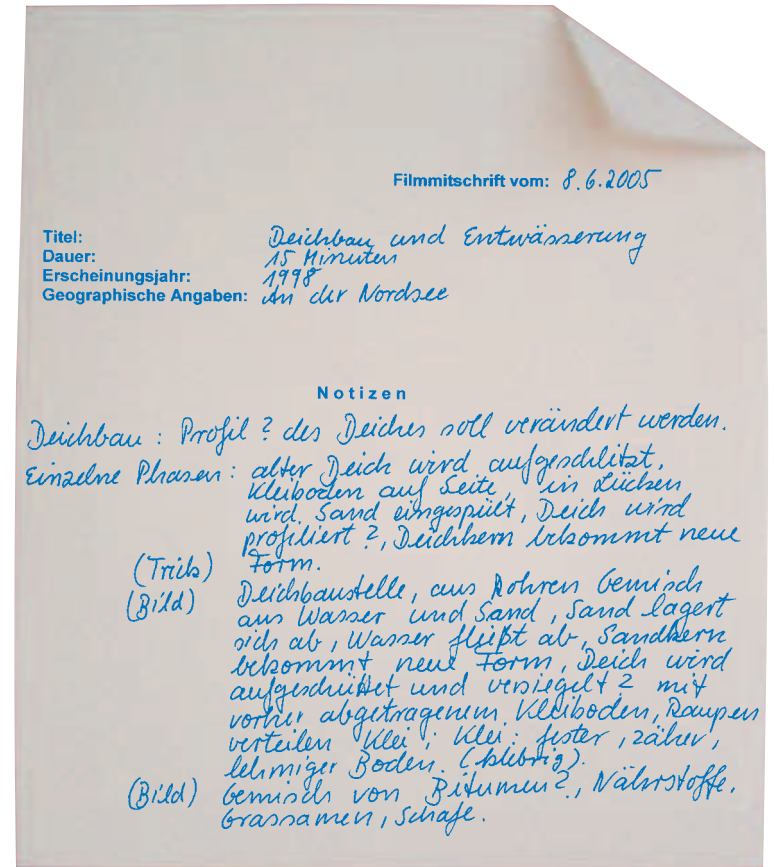 Filmmitschrift vom: 8.6.2005
Titel: Deichbau und Entwässerung
Dauer: 15 Minuten
Erscheinungsjahr: 1998
Geographische Angaben: An der Nordsee
Notizen
Deichbau: Profil? des Deiches soll verändert werden.
Einzelne Phasen: alter Deich wird aufgeschlitzt,
Kleiboden auf Seite, in Lücken
wird Sand eingespült, Deich wird
profiliert?, Deichkern bekommt neue
(Trick) Form.
(Bild) Deichbaustelle, aus Rohren Gemisch
aus Wasser und Sand, Sand lagert
sich ab, Wasser fließt ab, Sandkern
bekommt neue Form, Deich wird
aufgeschüttet und versiegelt? mit
vorher abgetragenem Kleiboden, Raupen
verteilen Klei; Klei: fester, zäher,
lehmiger Boden. (klebrig).
(Bild) Gemisch von Bitumen?, Nährstoffe,
Grassamen, Schafe.